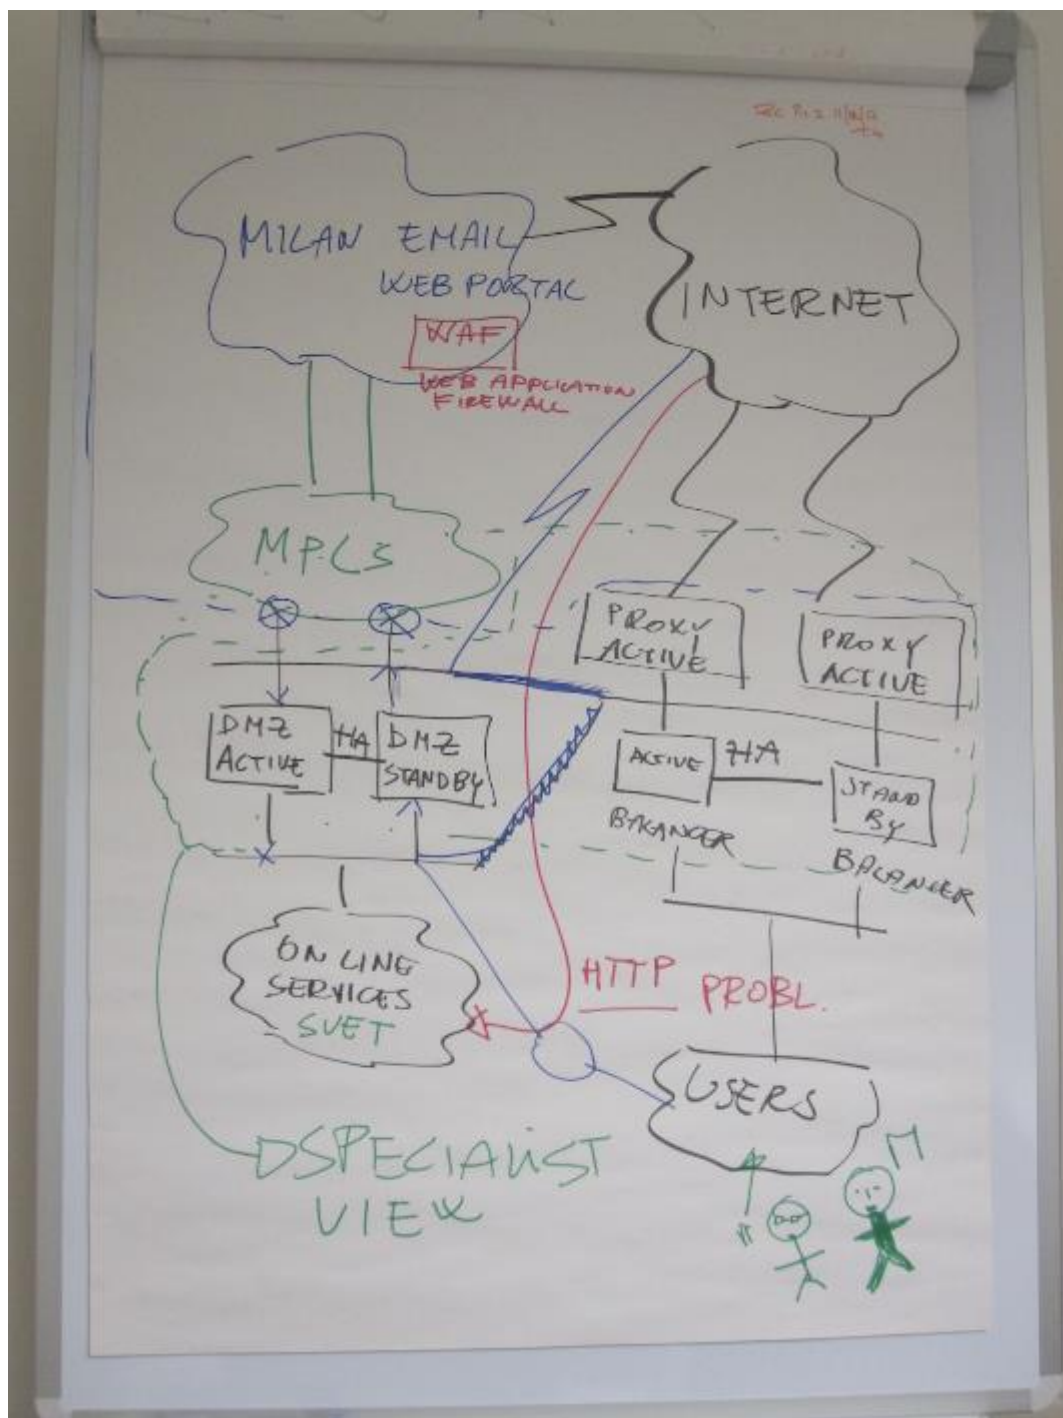 MILAN EMAIL
WEB PORTAL
WAF
WEB APPLICATION
FIREWALL
INTERNET
MPLS
PROXY
ACTIVE
PROXY
ACTIVE
DMZ
ACTIVE
HA
DMZ
STANDBY
ACTIVE
HA
STAND
BY
BALANCER
BALANCER
ON LINE
SERVICES
SVET
HTTP PROBL.
USERS
DSPECIALIST
VIEW